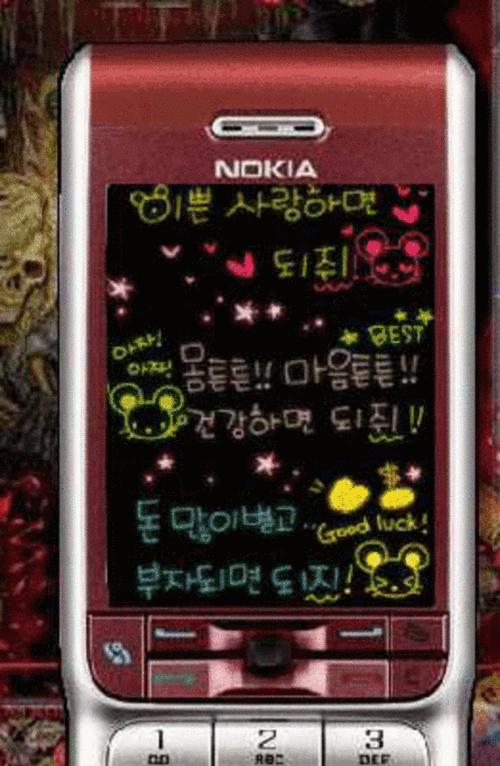 NOKIA
이쁜 사랑하면
되쥐
BEST
아자!
아자!
몸튼튼!! 마음튼튼!!
건강하면 되쥐!!
돈 많이벌고..
Good luck!
부자되면 되지!
1
2 ABC
3 DEF